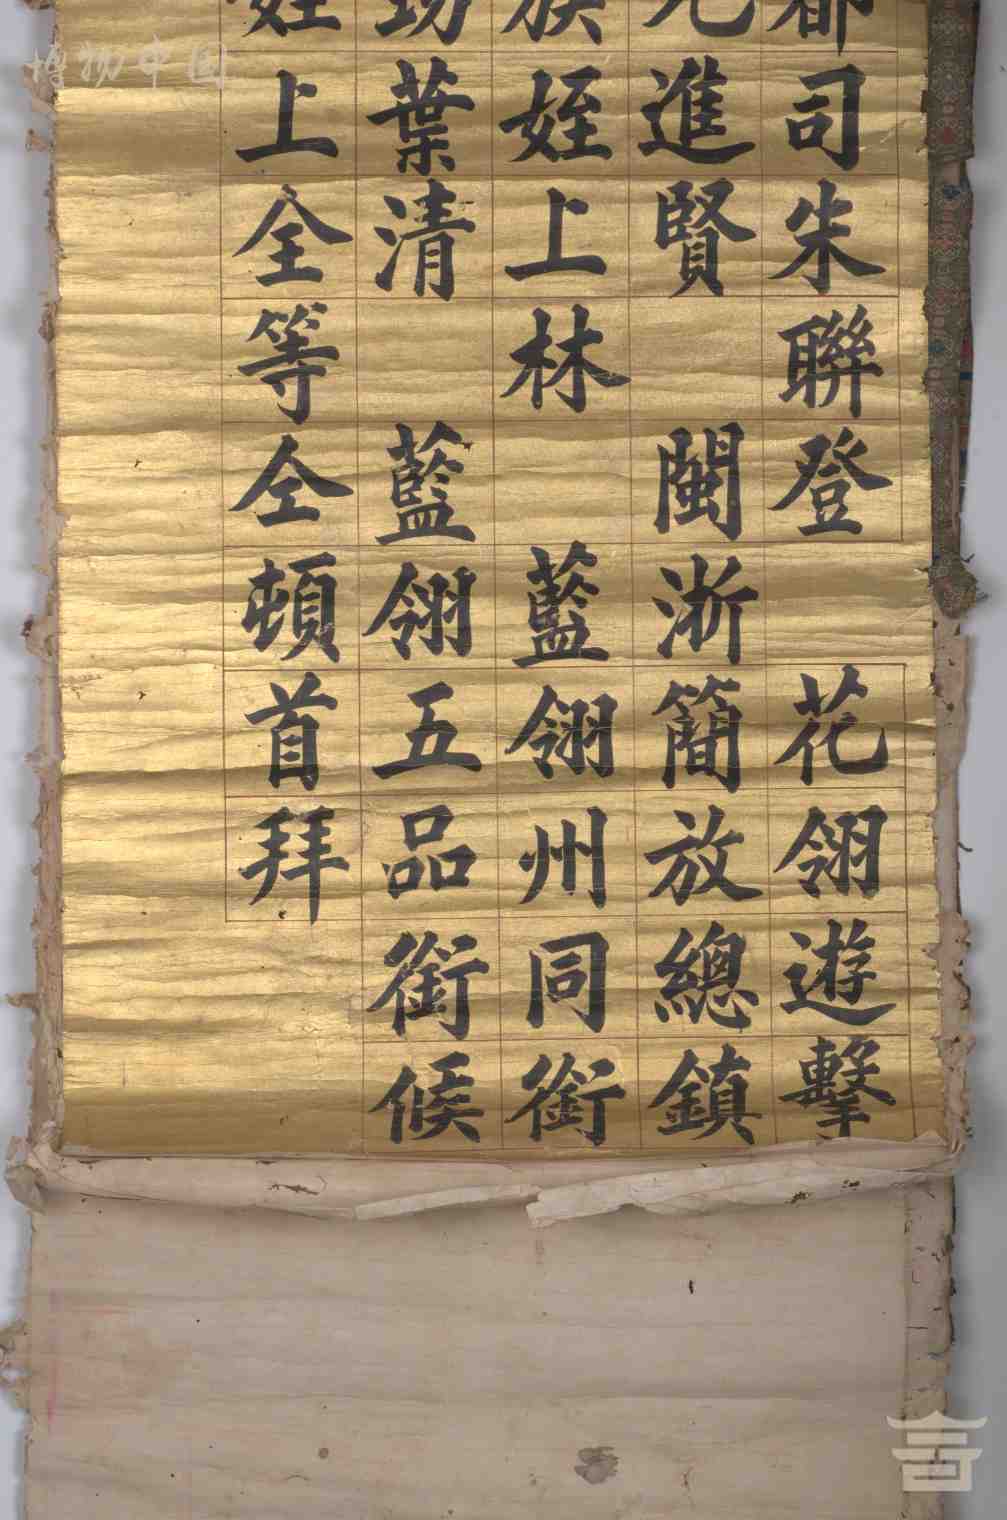 博物中国
都司朱聯登 花翎遊擊
進賢 閩浙簡放總鎮
族姪上林 藍翎州同銜
葉清 藍翎五品銜候
姪上全等仝頓首拜